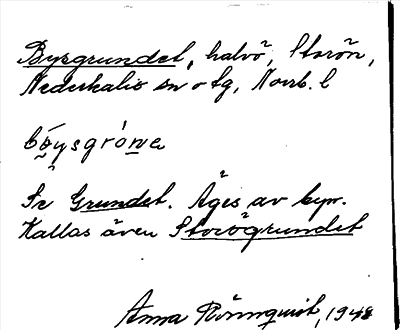 Bysgrundet, halvö, Storön,
Nederkalix sn o tg, Norrb. l
bo̤ysgróne
Se Grundet. Äges av byn.
Kallas även Storögrundet
Anna Rönnquist, 1948